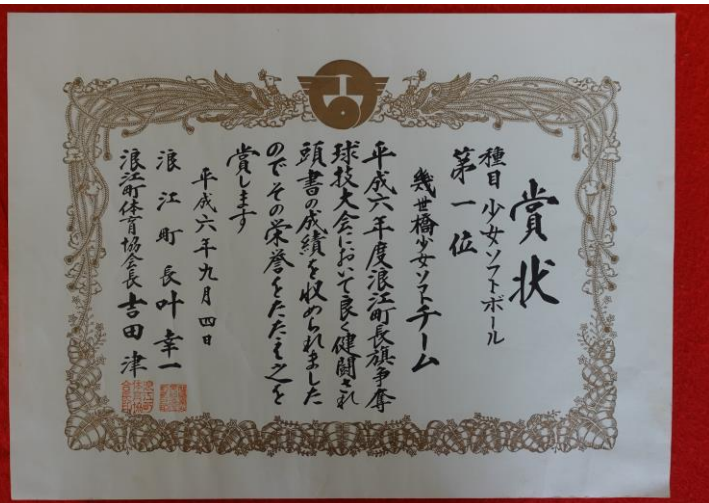 賞状
種目 少女ソフトボール
第一位
幾世橋少女ソフトチーム
平成六年度浪江町長旗争奪
球技大会において良く健闘され
頭書の成績を収められました
のでその栄誉をたたえ之を
賞します
平成六年九月四日
浪江町長 叶幸一
浪江町体育協会長 吉田津